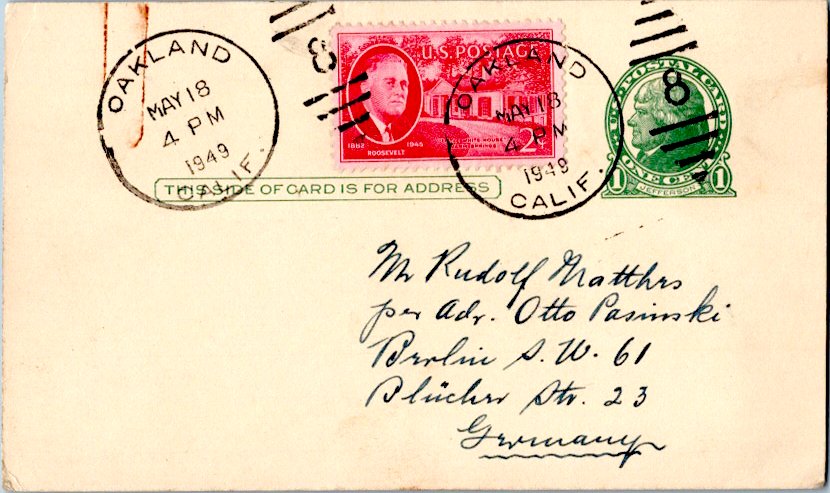 OAKLAND
MAY 18
4 PM
1949
CALIF.
8
U.S. POSTAGE
1882 1945
ROOSEVELT
LITTLE WHITE HOUSE
WARM SPRINGS
2¢
OAKLAND
MAY 18
4 PM
1949
CALIF.
8
U.S. POSTAL CARD
1 ONE CENT 1
JEFFERSON
THIS SIDE OF CARD IS FOR ADDRESS
Mr Rudolf Matthes
per Adr. Otto Pasinski
Berlin S.W. 61
Blücher Str. 23
Germany